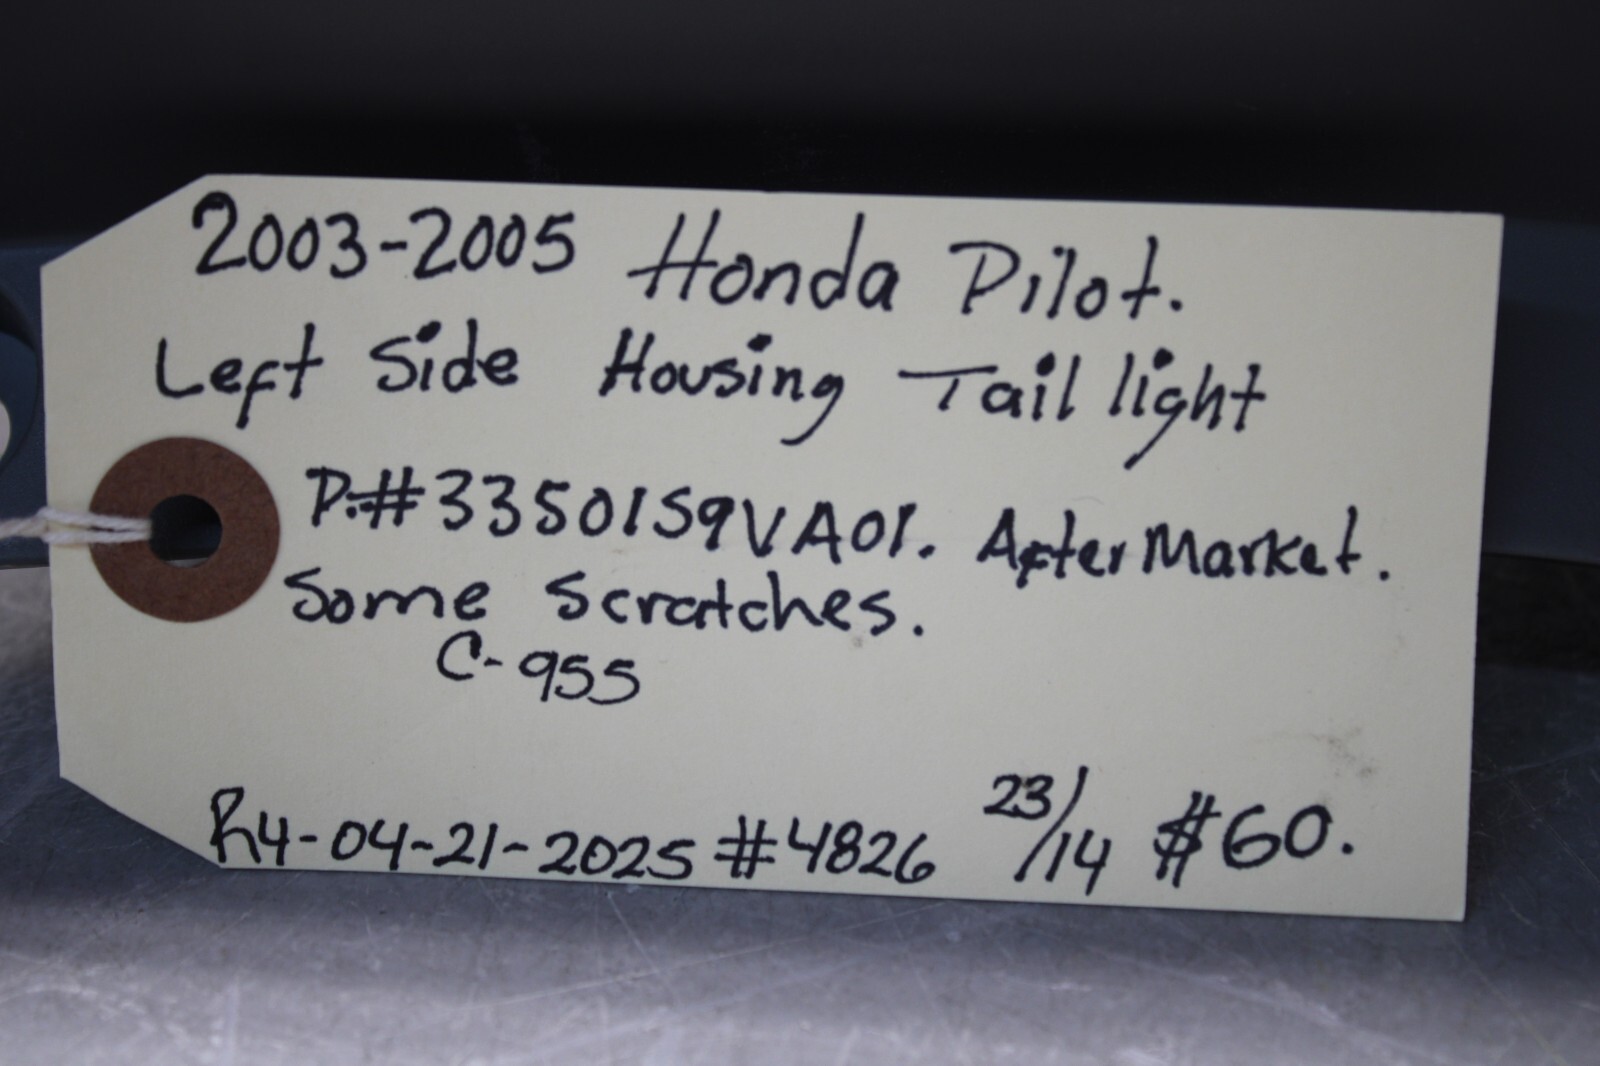 2003-2005 Honda Pilot.
Left Side Housing Tail light
P.#33501S9VA01. AfterMarket.
Some Scratches.
C-955
R4-04-21-2025 #4826 23/14 $60.